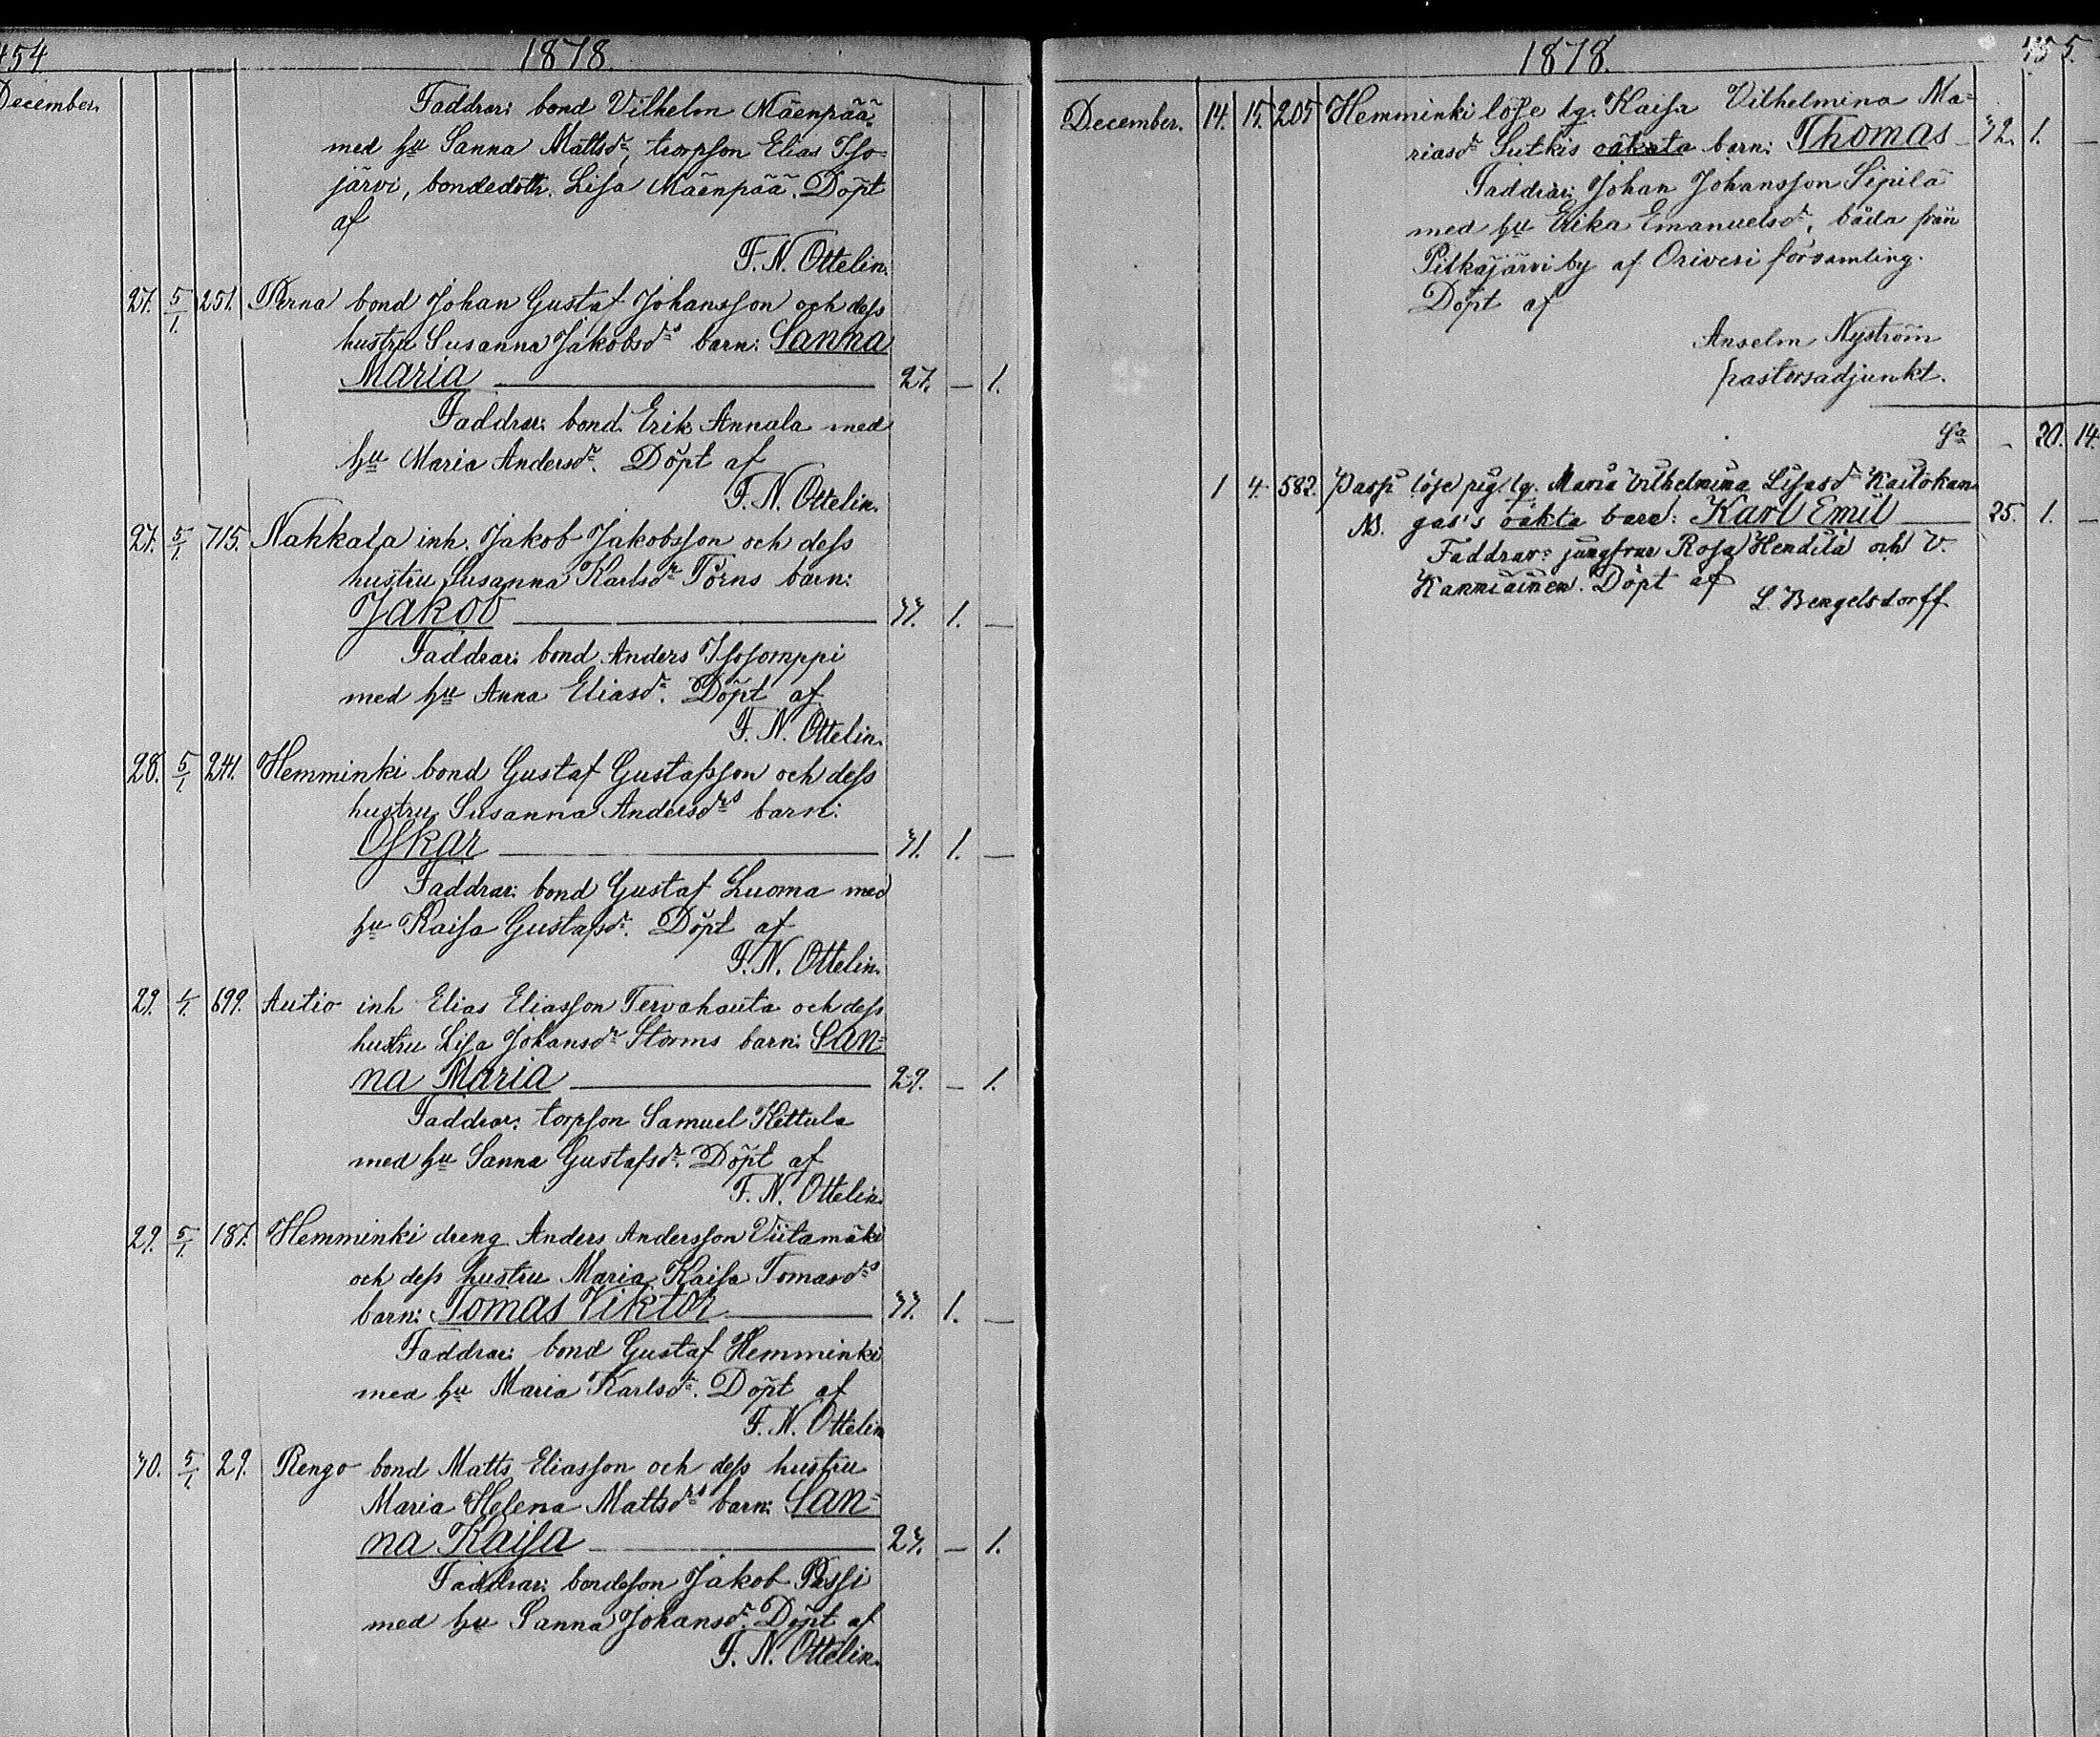 454 1878.
December.
Faddrar: bond Vilhelm Mäenpää
med hu Sanna Mattsdr, torpson Elias Iso=
järvi, bondedottr. Lisa Mäenpää. Döpt
af
F. N. Ottelin.
27. 5/1. 251. Perna bond Johan Gustaf Johansson och dess
hustru Susanna Jakobsdrs barn: Sanna
Maria 27. — 1.
Faddrar: bond. Erik Annala med
hu Maria Andersdr. Döpt af
F. N. Ottelin.
27. 5/1. 715. Nahkala inh. Jakob Jakobsson och dess
hustru Susanna Karlsdr Törns barn:
Jakob 37. 1. —
Faddrar: bond Anders Isosomppi
med hu Anna Eliasdr. Döpt af
F. N. Ottelin.
28. 5/1. 241. Hemminki bond Gustaf Gustafsson och dess
hustru Susanna Andersdrs barn:
Oskar 31. 1. —
Faddrar: bond Gustaf Luoma med
hu Kaisa Gustafsdr. Döpt af
F. N. Ottelin.
29. 699. Autio inh Elias Eliasson Tervahauta och dess
hustru Lisa Johansdr Storms barn: San=
na Maria 29. — 1.
Faddrar: torpson Samuel Kettula
med hu Sanna Gustafsdr. Döpt af
F. N. Ottelin.
29. 5/1. 187. Hemminki dreng Anders Andersson Viitamäki
och dess hustru Maria Kaisa Tomasdrs
barn: Tomas Viktor 33. 1. —
Faddrar: bond Gustaf Hemminki
med hu Maria Karlsdr. Döpt af
F. N. Ottelin
30. 5/1. 29. Rengo bond Matts Eliasson och dess hustru
Maria Helena Mattsdrs barn: San=
na Kaisa 23. — 1.
Faddrar: bondeson Jakob Passi
med hu Sanna Johansdr. Döpt af
F. N. Ottelin.
1878. 455.
December. 14. 15. 205 Hemminki löse Kaisa Vilhelmina Ma=
riasdr Sutkis oäkta barn: Thomas 32. 1. —
Faddrar: Johan Johansson Sipilä
med hu Erika Emanuelsdr, båda från
Pitkäjärvi by af Orivesi församling.
Döpt af
Anselm Nyström
pastorsadjunkt.
Sa - 20. 14.
1 4. 582. Passi löse pig. Maria Vilhelmina Lisasdr Kaitokan
NB. gas's oäkta barn: Karl Emil 25. 1. —
Faddrar: jungfrur Rosa Hendilä och V.
Kanniainen. Döpt af
L. Bengelsdorff